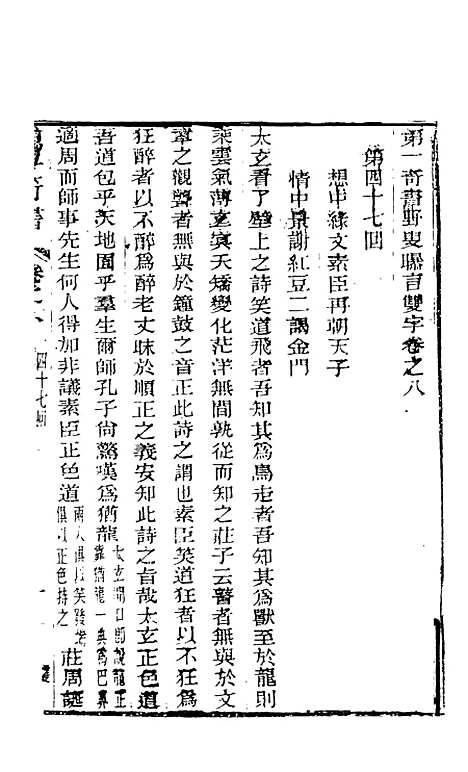 第一奇書野叟曝言雙字卷之八
第四十七回
想中緣文素臣再朝天子
情中景謝紅豆二謁金門
太玄看了壁上之詩笑道飛者吾知其爲鳥走者吾知其爲獸至於龍則
乘雲氣薄玄寘天矯變化茫洋無間孰從而知之莊子云瞽者無與於文
章之觀聾者無與於鐘鼓之音正此詩之謂也素臣笑道狂者以不狂爲
狂醉者以不醉爲醉老丈昧於順正之義安知此詩之旨哉太玄正色道
吾道包乎天地固乎羣生爾師孔子尙驚嘆爲猶龍太玄開口卽說龍正靠猶龍一典爲巴鼻
適周而師事先生何人得加非議素臣正色道兩人俱以笑發端俱以正色持之莊周誕
奇書
卷之八
四十七回
一